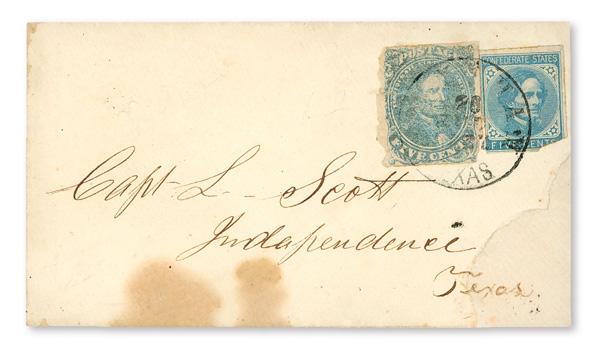 POSTAGE
FIVE CENTS
CONFEDERATE STATES
FIVE CENTS
20
TEXAS
Capt. L. Scott
Independence
Texas